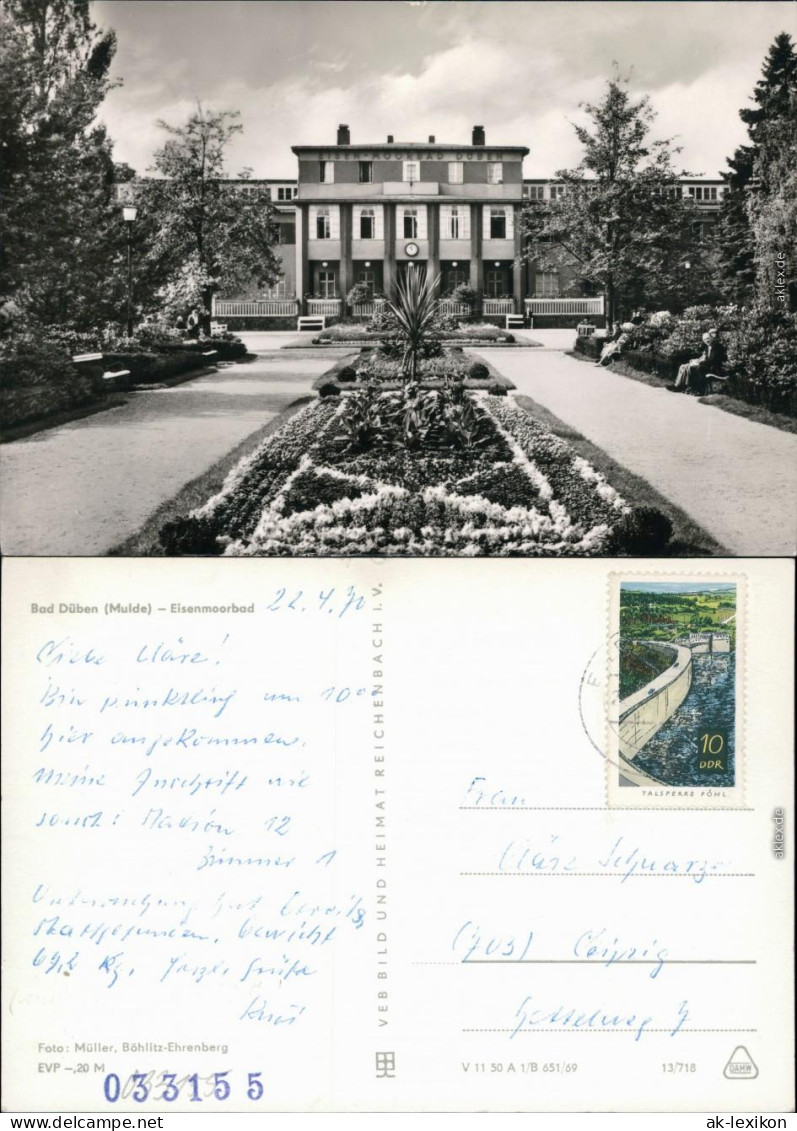 EISEN-MOORBAD DÜBEN
Bad Düben (Mulde) – Eisenmoorbad
22.4.70
Liebe Kläre!
Bin pünktlich um 10°°
hier angekommen.
Meine Anschrift wie
sonst:
12
Zimmer 1
Untersuchung hat bereits
stattgefunden. Gewicht
69,2 Kg. Herzl. Grüße
VEB BILD UND HEIMAT REICHENBACH I. V.
10
DDR
TALSPERRE PÖHL
Frau
Kläre Schwarze
(703) Leipzig
Foto: Müller, Böhlitz-Ehrenberg
EVP –,20 M
033155
V 11 50 A 1/B 651/69
13/718
DAMW
aklex.de
aklex.de
www.delcampe.net
ak-lexikon